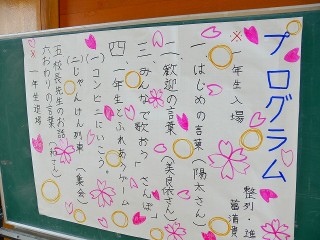 プログラム
※一年生入場
整列・進
一 はじめの言葉(陽太さん)
二、歓迎の言葉(美良さん)
三 みんなで歌おう「さんぽ」
四、一年生とふれあいゲーム
(一)コンビニにいこう。
(二)じゃんけん列車(集会)
五 校長先生のお話
六 おわりの言葉
※ 一年生退場